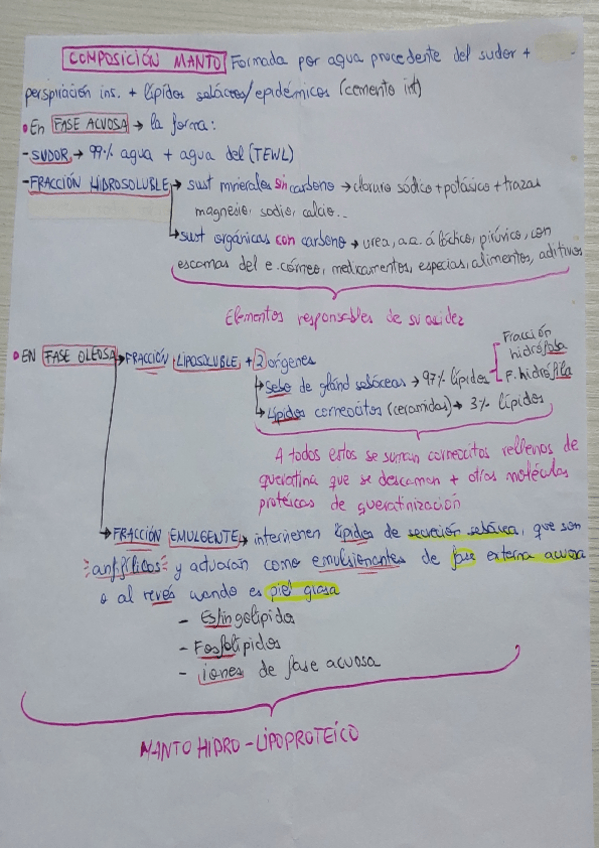 COMPOSICIÓN MANTO Formada por agua procedente del sudor +
perspiración ins. + lípidos sebáceos/epidémicos (cemento int)
• En FASE ACUOSA → la forma:
- SUDOR → 99% agua + agua del (TEWL)
- FRACCIÓN HIDROSOLUBLE → sust minerales sin carbono → cloruro sódico + potásico + trazas
magnesio, sodio, calcio..
→ sust orgánicas con carbono → urea, a.a. á láctico, pirúvico, con
escamas del e. córneo, medicamentos, especias, alimentos, aditivos
Elementos responsables de su acidez
• EN FASE OLEOSA → FRACCIÓN LIPOSOLUBLE + 2 orígenes
→ Sebo de glánd sebáceas → 97% lípidos
Fracción
hidrófoba
F. hidrófila
→ Lípidos corneocitos (ceramidas) → 3% lípidos
A todos estos se suman corneocitos rellenos de
queratina que se descaman + otras moléculas
protéicas de queratinización
→ FRACCIÓN EMULGENTE → intervienen lípidos de secreción sebácea, que son
anfifílicos y actuarán como emulsionantes de fase externa acuosa
o al revés cuando es piel grasa
- Esfingolípidos
- Fosfolípidos
- iones de fase acuosa
MANTO HIDRO-LIPOPROTEÍCO